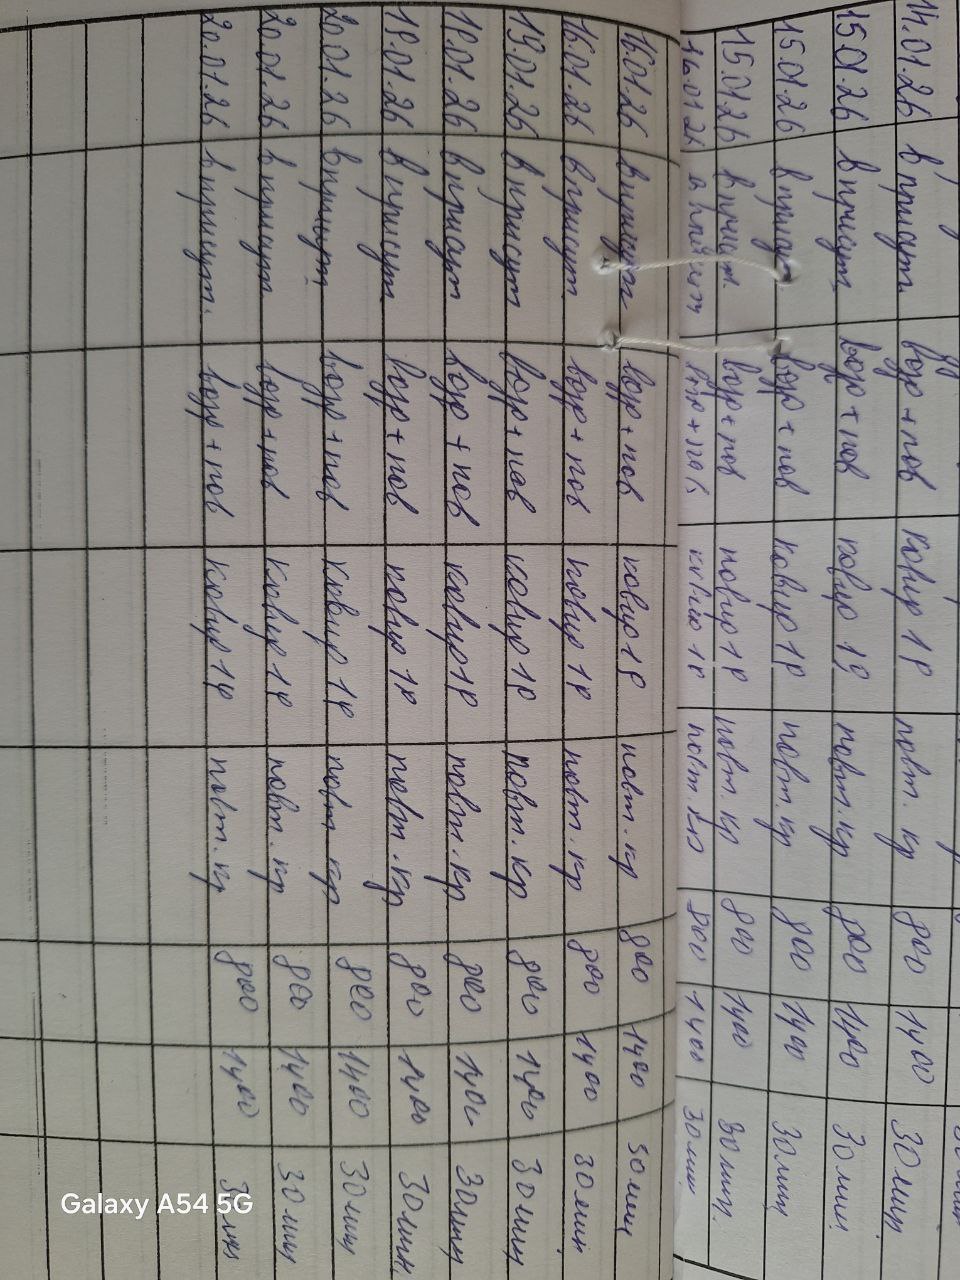 14.01.26 в присут возд + пов ковир 1р повт. кр 800 1400 30 мин
15.01.26 в присут возд + пов ковир 19 повт. кр 800 1400 30 мин
15.01.26 в присут возд + пов ковир 1р повт. кр 800 1400 30 мин
15.01.26 в присут. возд + пов ковир 1р повт. кр 800 1400 30 мин.
16.01.26 в присут возд + пов ковир 1р повт. 800 1400 30 мин
16.01.26 в присут возд + пов ковир 1р повт. кр 800 1400 30 мин
16.01.26 в присут возд + пов ковир 1р повт. кр 800 1400 30 мин
19.01.26 в присут возд + пов ковир 1р повт. кр 800 1400 30 мин
19.01.26 в присут возд + пов ковир 1р повт. кр 800 1400 30 мин
19.01.26 в присут возд + пов ковир 1р повт. кр 800 1400 30 мин.
20.01.26 в присут возд + пов ковир 1р повт кр 800 1400 30 мин
20.01.26 в присут возд + пов ковир 1р повт. кр 800 1400 30 мин
20.01.26 в присут. возд + пов ковир 1р повт. кр 800 1400 30 мин
Galaxy A54 5G